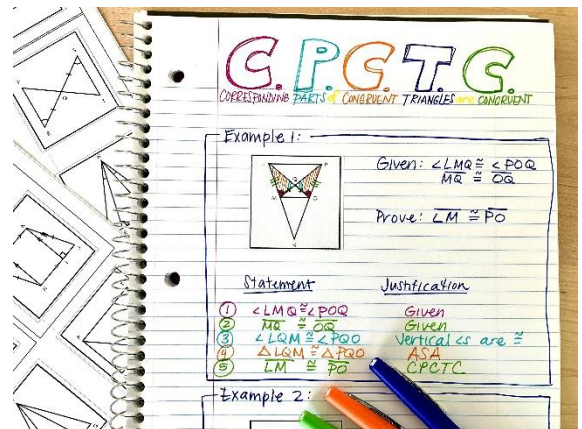 C.P.C.T.C.
CORRESPONDING PARTS of CONGRUENT TRIANGLES are CONGRUENT
Example 1:
Given: ∠LMQ ≅ ∠POQ
MQ ≅ OQ
Prove: LM ≅ PO
Statement Justification
① ∠LMQ ≅ ∠POQ Given
② MQ ≅ OQ Given
③ ∠LQM ≅ ∠PQO Vertical ∠s are ≅
④ △LQM ≅ △PQO ASA
⑤ LM ≅ PO CPCTC
Example 2: